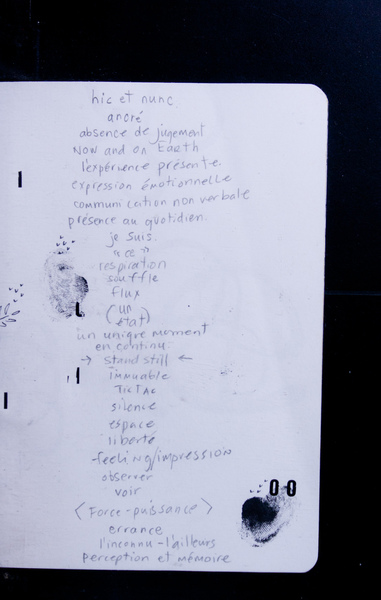 hic et nunc.
ancré
absence de jugement
Now and on Earth
l'expérience présente
expression émotionnelle
communication non verbale
présence au quotidien.
je suis.
"ce"
respiration
souffle
flux
(un
état)
un unique moment
en continu:
→ Stand still ←
immuable
TicTAc
silence
espace
liberté
-feeling/impression
observer
voir
00
< Force-puissance >
errance
l'inconnu-l'ailleurs
perception et mémoire